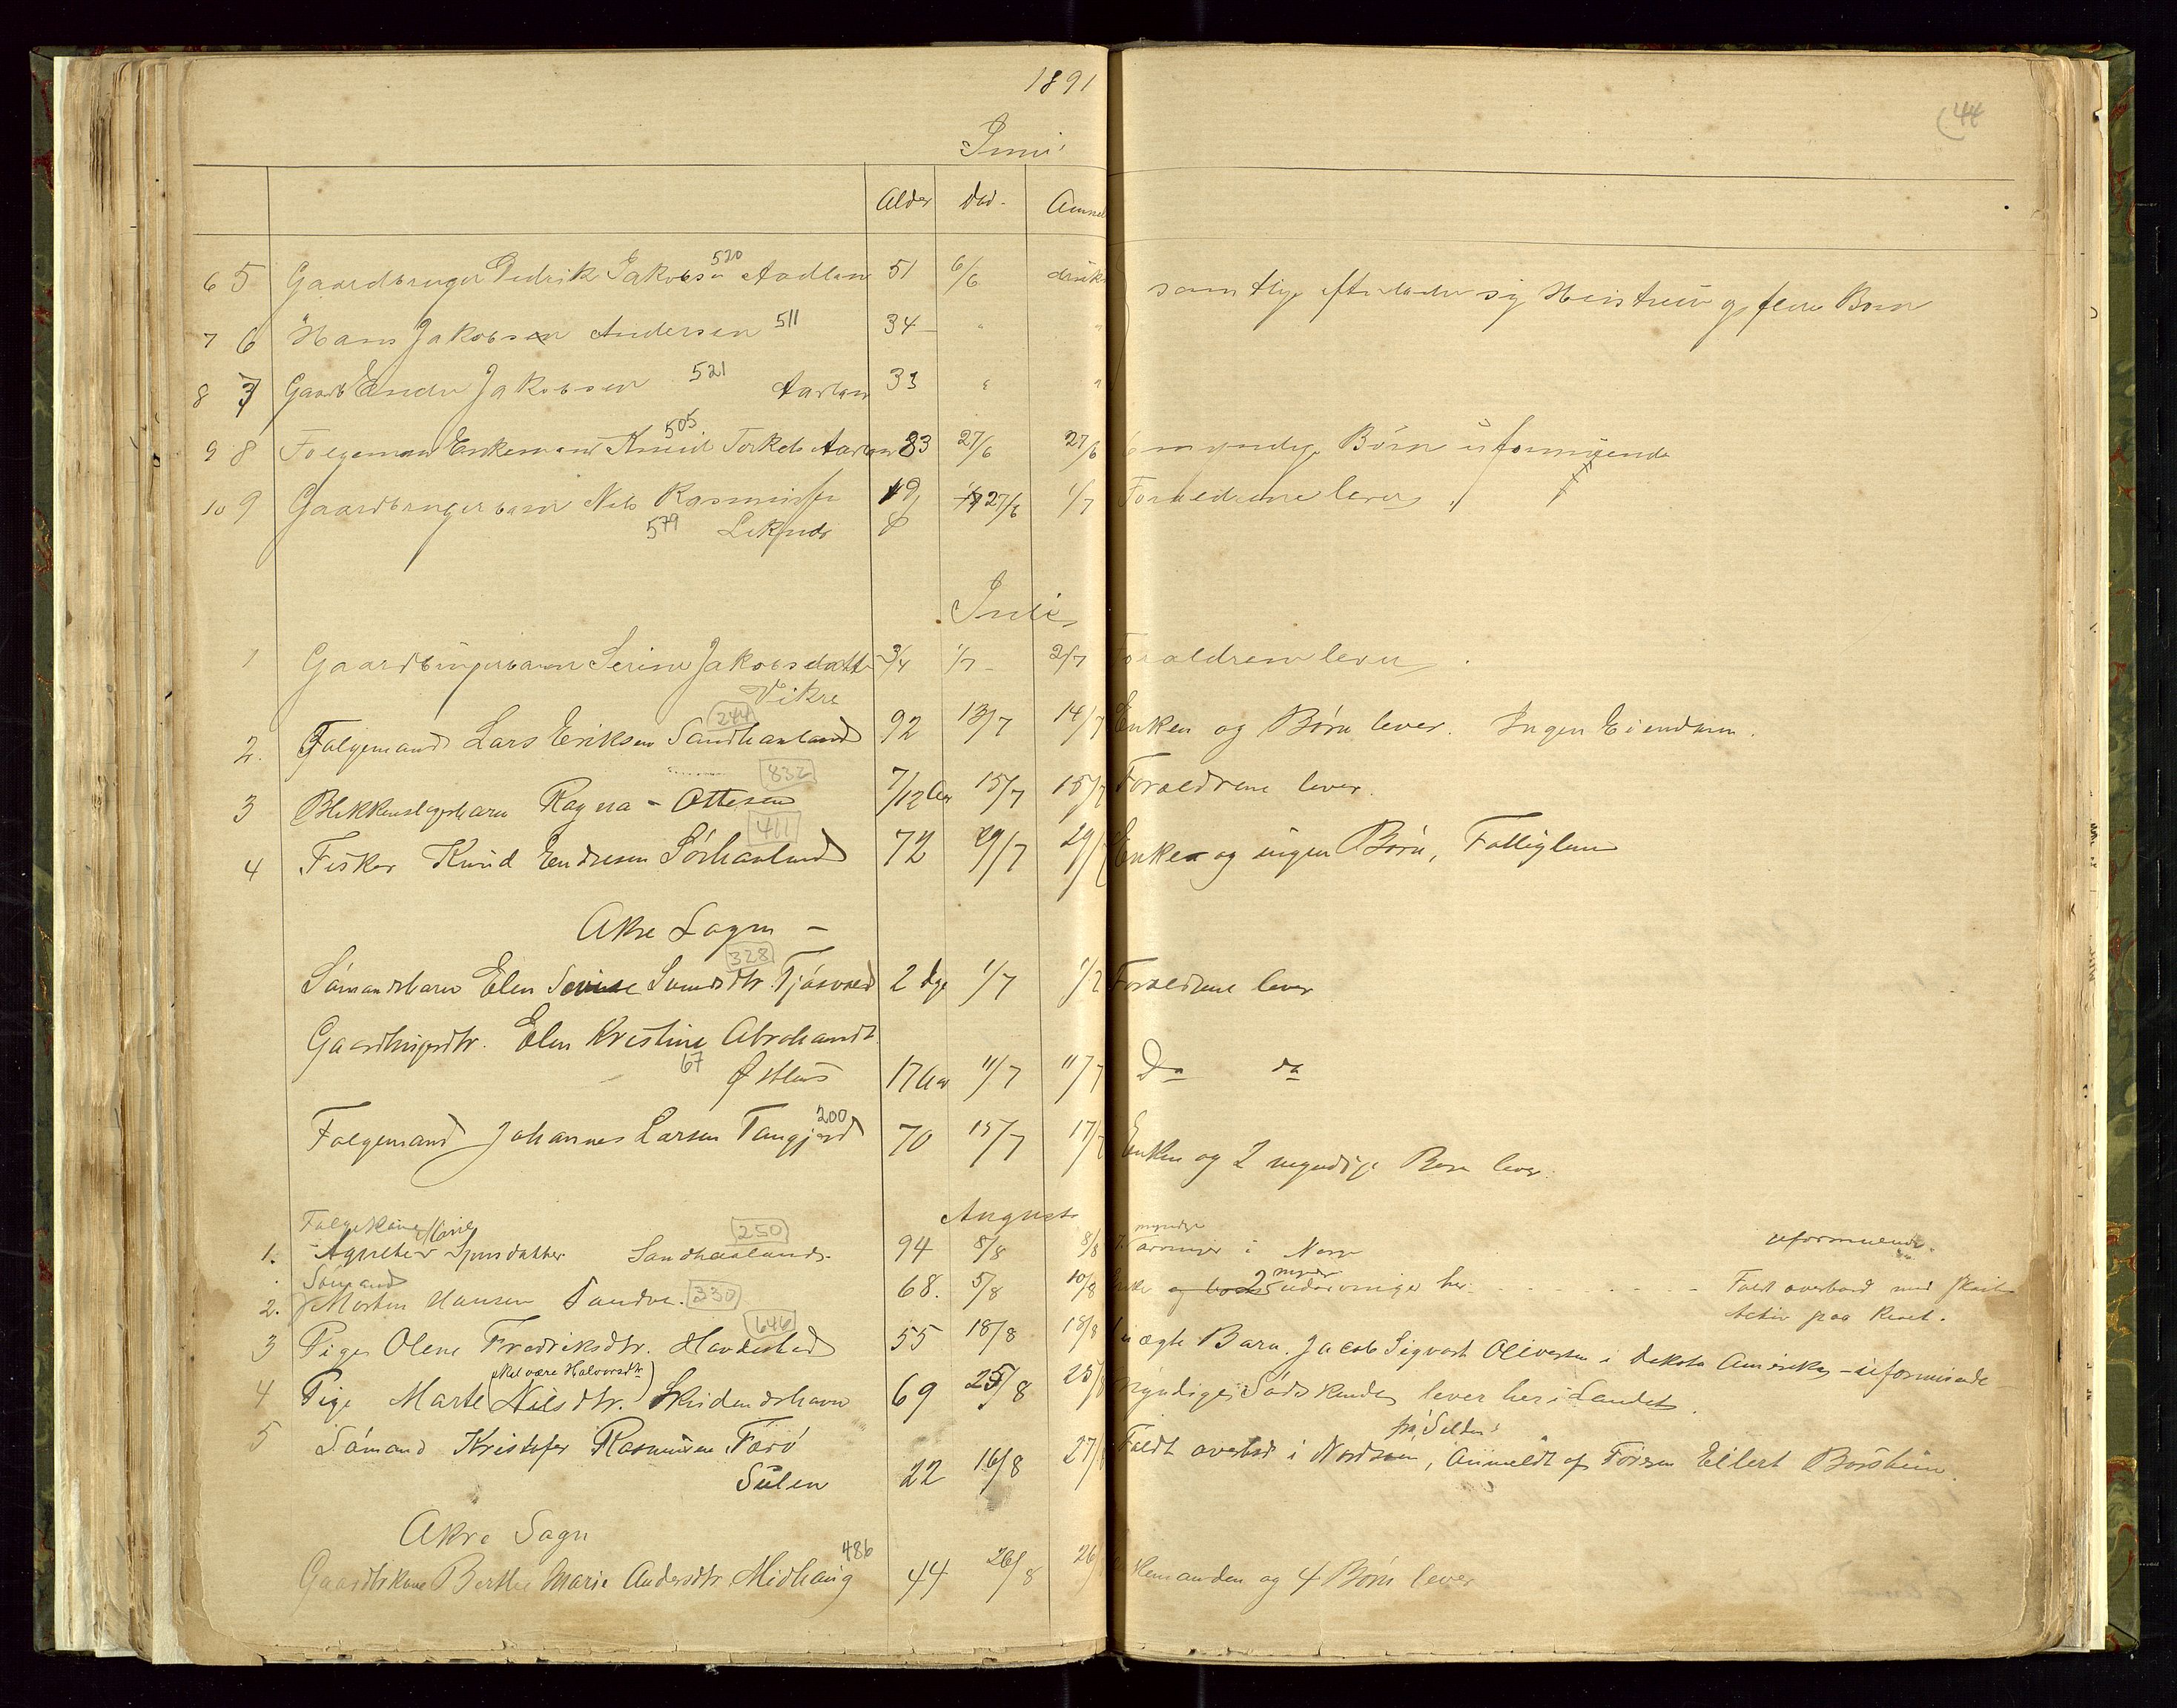 1891
44
Juni
Alder Død. Anmel
6 5 Gaardbruger Didrik Jakobsen 520 Aadlan 51 6/6 druk samtlige efterlader sig Hustru og flere Børn
7 6 Hans Jakobsen Andersen 511 34 " "
8 7 Gaardb Endre Jakobsen 521 Aarlan 33 " "
9 8 Folgemand Enkemand Knud Torkels 505 Aarlan 83 27/6 27/6 6 myndige Børn uformuende
10 9 Gaardbrugerbarn Nils Rasmussen 19 27/6 1/7 Foraldrene lever "
579
Juli
1 Gaardbrugerbarn Serine Jakobsdatter 3/4 1/7 2/7 Foraldrene lever
Vikre
2. Folgemand Lars Eriksen Sandhauland 244 92 13/7 14/7 Enken og Børn lever. Ingen Eiendom.
3 Blikkenslagerbarn Ragna - Ottesen 832 7/12 Aar 15/7 15/7 Foraldrene lever.
4 Fisker Knud Endresen Sørhauland 411 72 29/7 29/7 Enke og ingen Børn, Fattiglem
Akre Sogn -
Sømandsbarn Elen Serine Svendsdtr. Tjøsvold 328 2 dge 1/7 1/7 Foraldrene lever
Gaardbrugerdtr. Elen Kristine Abrahamsdt
67 Østhus 17 Aar 11/7 11/7 Do do
Folgemand Johannes Larsen Tangjerd 200 70 15/7 17/7 Enken og 2 myndige Børn lever.
August
Folgekone
1. Agnethe Sjursdatter Sandhaaland. 250 94 8/8 8/8 7. myndge Arvinger i Norge uformuende.
Sømand
2. Morten Hansen Sandve. 330 68. 5/8 10/8 Enke og 2 mynd. Livsarvinger her. - - - - Falt overbord med skøite
Activ paa Reset.
3 Pige Olene Fredriksdtr. Havdested 646 55 18/8 18/8 1 uægte Barn. Jacob Sigvart Olivesen i Dakota Amerika - uformuende
4 Pige Marte Nilsdtr. (skal være Halvorsdtr) Skudeneshavn 69 25/8 25/8 Myndige Sødskende lever her i Landet.
5 Sømand Kristofer Rasmussen Førø
Sulen 22 16/8 27/8 Faldt overbord i Nordsøen, fra "Selden" Anmeldt af Føreren Eilert Børsheim.
Akre Sogn
Gaardbrkone Berthe Marie Andersdtr. Midhaug 486 44 26/8 26 Ektemanden og 4 Børn lever